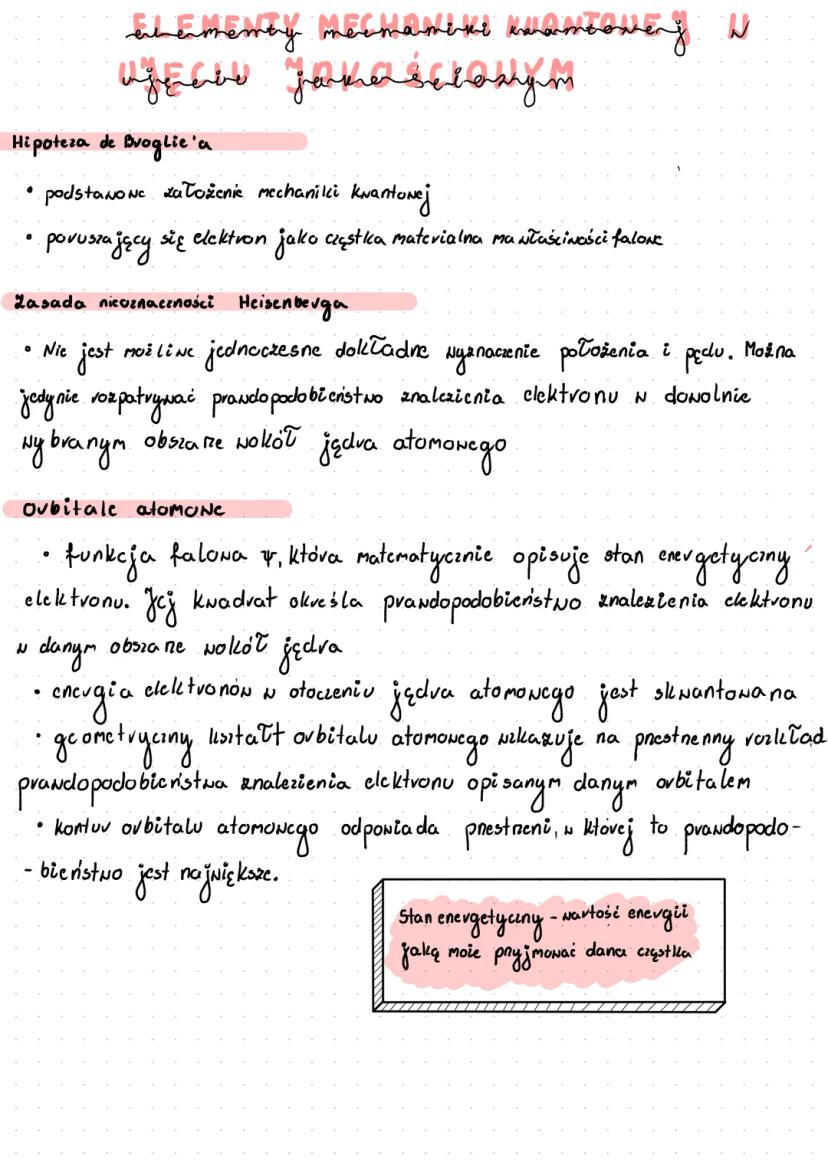 elementy mechaniki kwantowej w
ujęciu jakościowym
Hipoteza de Broglie'a
• podstawowe założenie mechaniki kwantowej
• poruszający się elektron jako cząstka materialna ma właściwości falowe
Zasada nieoznaczności Heisenberga
• Nie jest możliwe jednoczesne dokładne wyznaczenie położenia i pędu. Można
jedynie rozpatrywać prawdopodobieństwo znalezienia elektronu w dowolnie
wybranym obszarze wokół jądra atomowego
Orbitale atomowe
• funkcja falowa ψ, która matematycznie opisuje stan energetyczny
elektronu. Jej kwadrat określa prawdopodobieństwo znalezienia elektronu
w danym obszarze wokół jądra
• energia elektronów w otoczeniu jądra atomowego jest skwantowana
• geometryczny kształt orbitalu atomowego wskazuje na przestrzenny rozkład
prawdopodobieństwa znalezienia elektronu opisanym danym orbitalem
• kontur orbitalu atomowego odpowiada przestrzeni, w której to prawdopodo-
- bieństwo jest największe.
Stan energetyczny - wartość energii
jaką może przyjmować dana cząstka